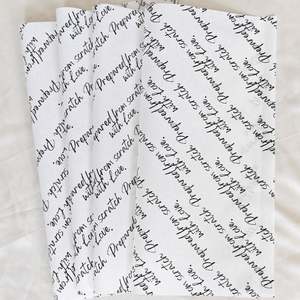 Prepared from scratch.
with Love.
Prepared from scratch.
with Love.
Prepared from scratch.
with Love.
Prepared from scratch.
with Love.
Prepared from scratch.
with Love.
Prepared from scratch.
with Love.